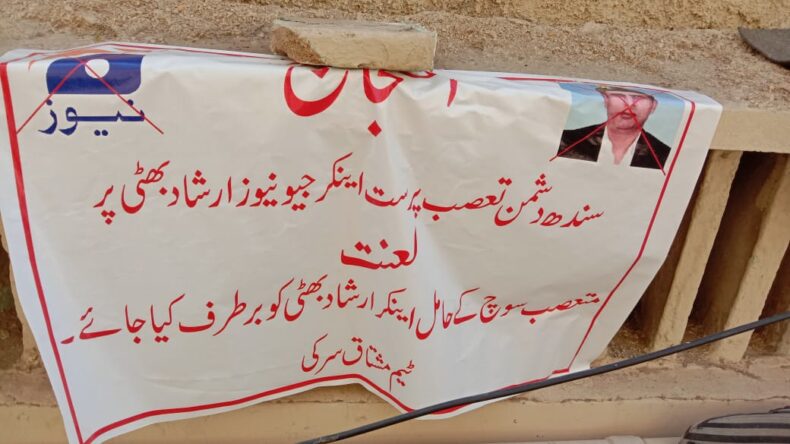 نیوز
سندھ دشمن تعصب پرست اینکر جیو نیوز ارشاد بھٹی پر
لعنت
متعصب سوچ کے حامل اینکر ارشاد بھٹی کو برطرف کیا جائے۔
ٹیم مشتاق سرکی